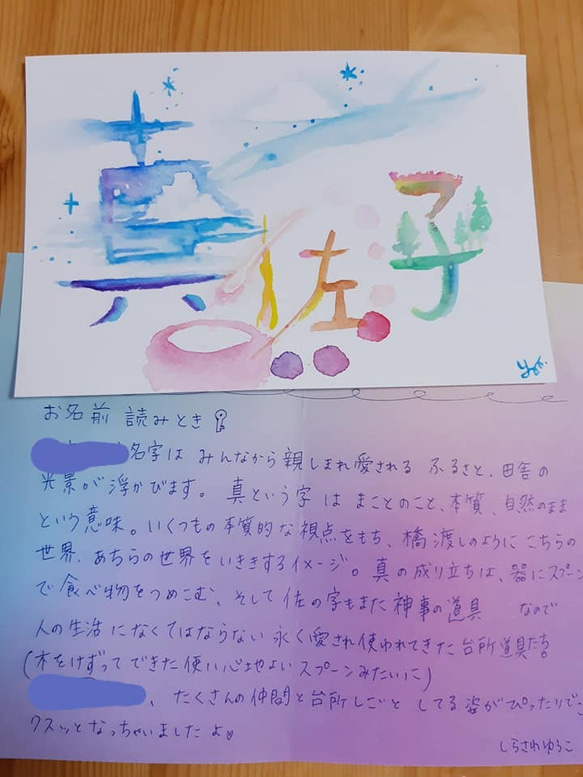 真佐子
お名前 読みとき
名字は みんなから親しまれ愛される ふるさと、田舎の
光景が浮かびます。 真という字は まことのこと、本質、自然のまま
という意味。いくつもの本質的な視点をもち、橋渡しのように こちらの
世界、あちらの世界をいききするイメージ。真の成り立ちは、器にスプーン
で食べ物をつめこむ、そして 佐の字もまた 神事の道具 なので
人の生活になくてはならない 永く愛され使われてきた 台所道具たち。
(木をけずって できた 使い心地よい スプーンみたいに)
、たくさんの仲間と台所しごと してる姿がぴったりで、
クスッと なっちゃいましたよ
しらさわゆうこ